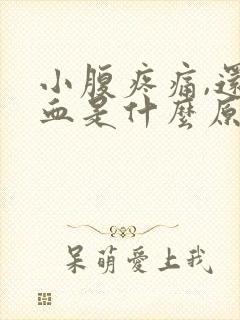 小腹疼痛,還
血是什麼原
呆萌愛上我